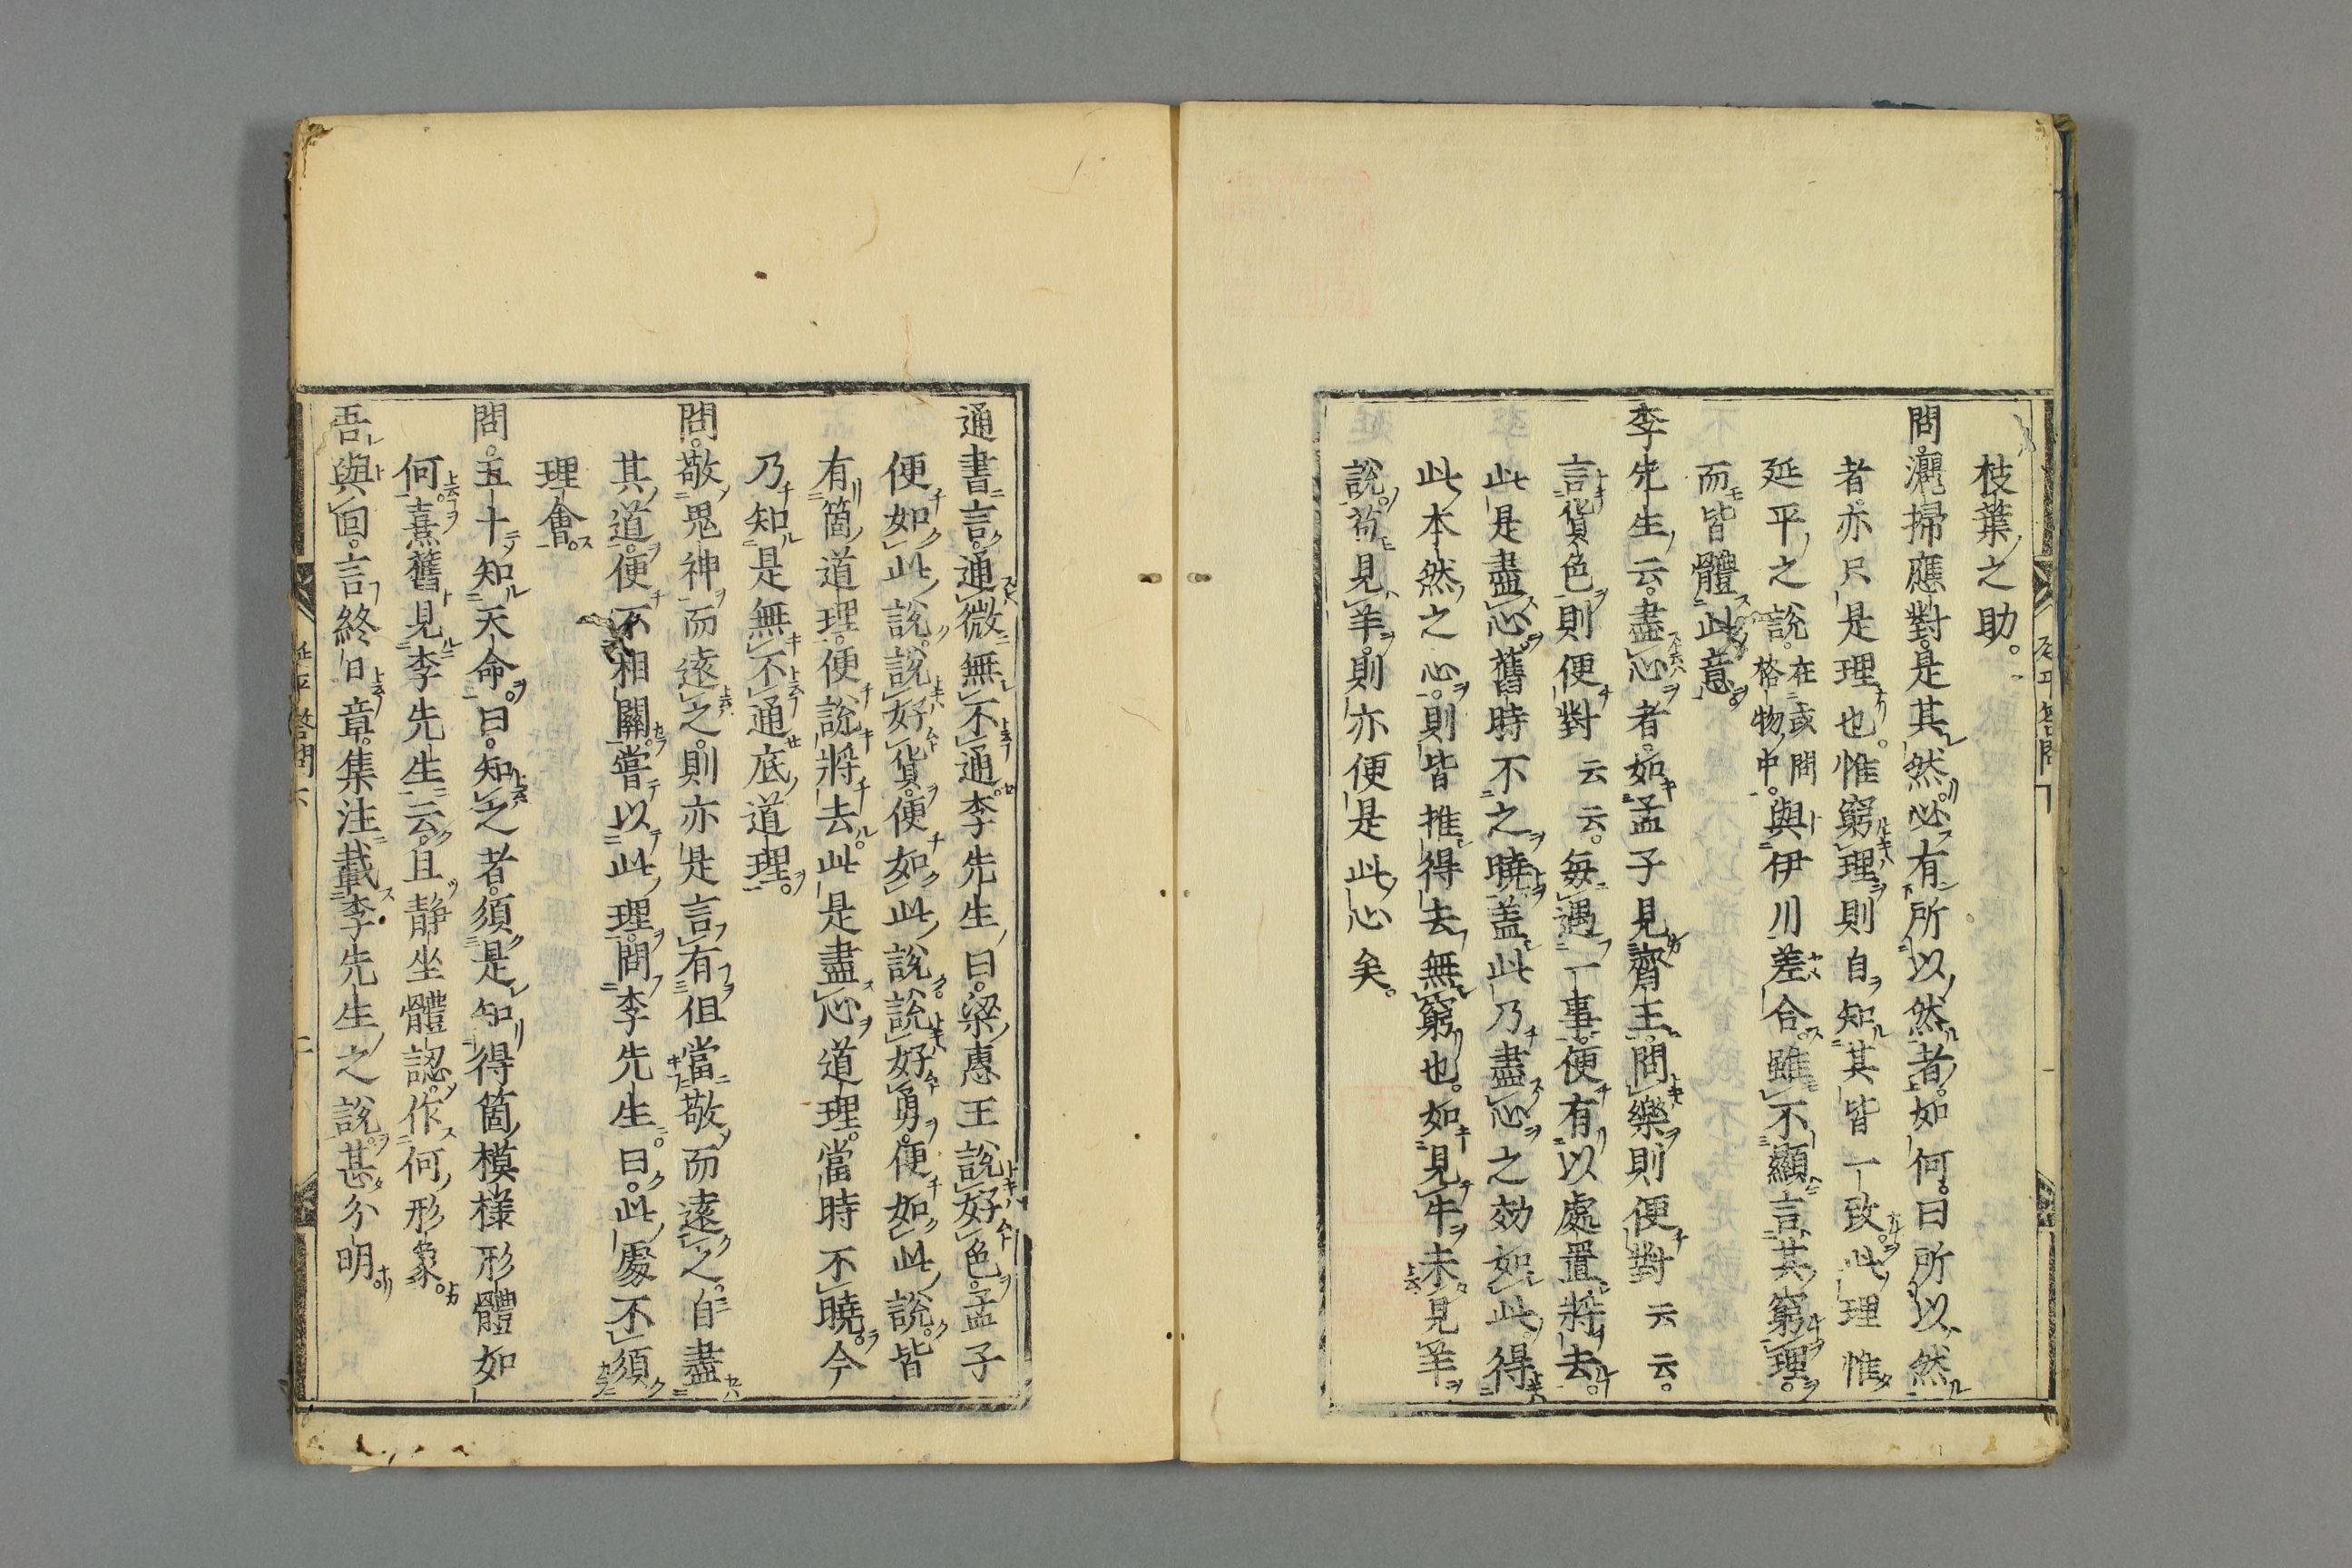 枝葉之助。
問。灑掃應對。是其然。必有所以然者。如何。曰所以然
者。亦只是理也。惟窮理則自知其皆一致。此理惟
延平之說。在或問格物中。與伊川差合。雖不顯言其窮理。
而皆體此意。
李先生云。盡心者。如孟子見齊王。問樂則便對云云。
言貨色則便對云云。每遇一事。便有以處置將去。
此是盡心。舊時不之曉。盖此乃盡心之効如此。得
此本然之心。則皆推得去無窮也。如見牛未見羊
說。苟見羊。則亦便是此心矣。
通書言。通微無不通。李先生曰。梁惠王說好色。孟子
便如此說。說好貨。便如此說。說好勇。便如此說。皆
有箇道理。便說將去。此是盡心道理。當時不曉。今
乃知是無不通底道理。
問。敬鬼神而遠之。則亦是言有但當敬而遠之。自盡
其道。便不相關。嘗以此理。問李先生。曰。此處不須
理會。
問。五十知天命。曰。知之者。須是知得箇模樣形體如
何。熹舊見李先生云。且靜坐體認。作何形象。
吾與回。言終日章。集注載李先生之說。甚分明。